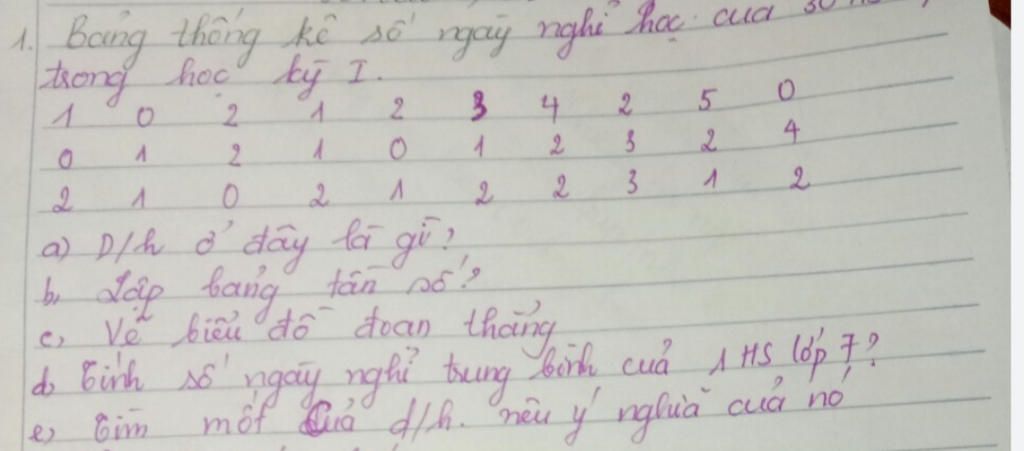 1. Bảng thống kê số ngày nghỉ học của 30
trong học kỳ I.
1 0 2 1 2 3 4 2 5 0
0 1 2 1 0 1 2 3 2 4
2 1 0 2 1 2 2 3 1 2
a) D/h ở đây là gì?
b, Lập bảng tần số?
c, Vẽ biểu đồ đoạn thẳng
d, Tính số ngày nghỉ trung bình của 1 HS lớp 7?
e, Tìm mốt của d/h. nêu ý nghĩa của nó